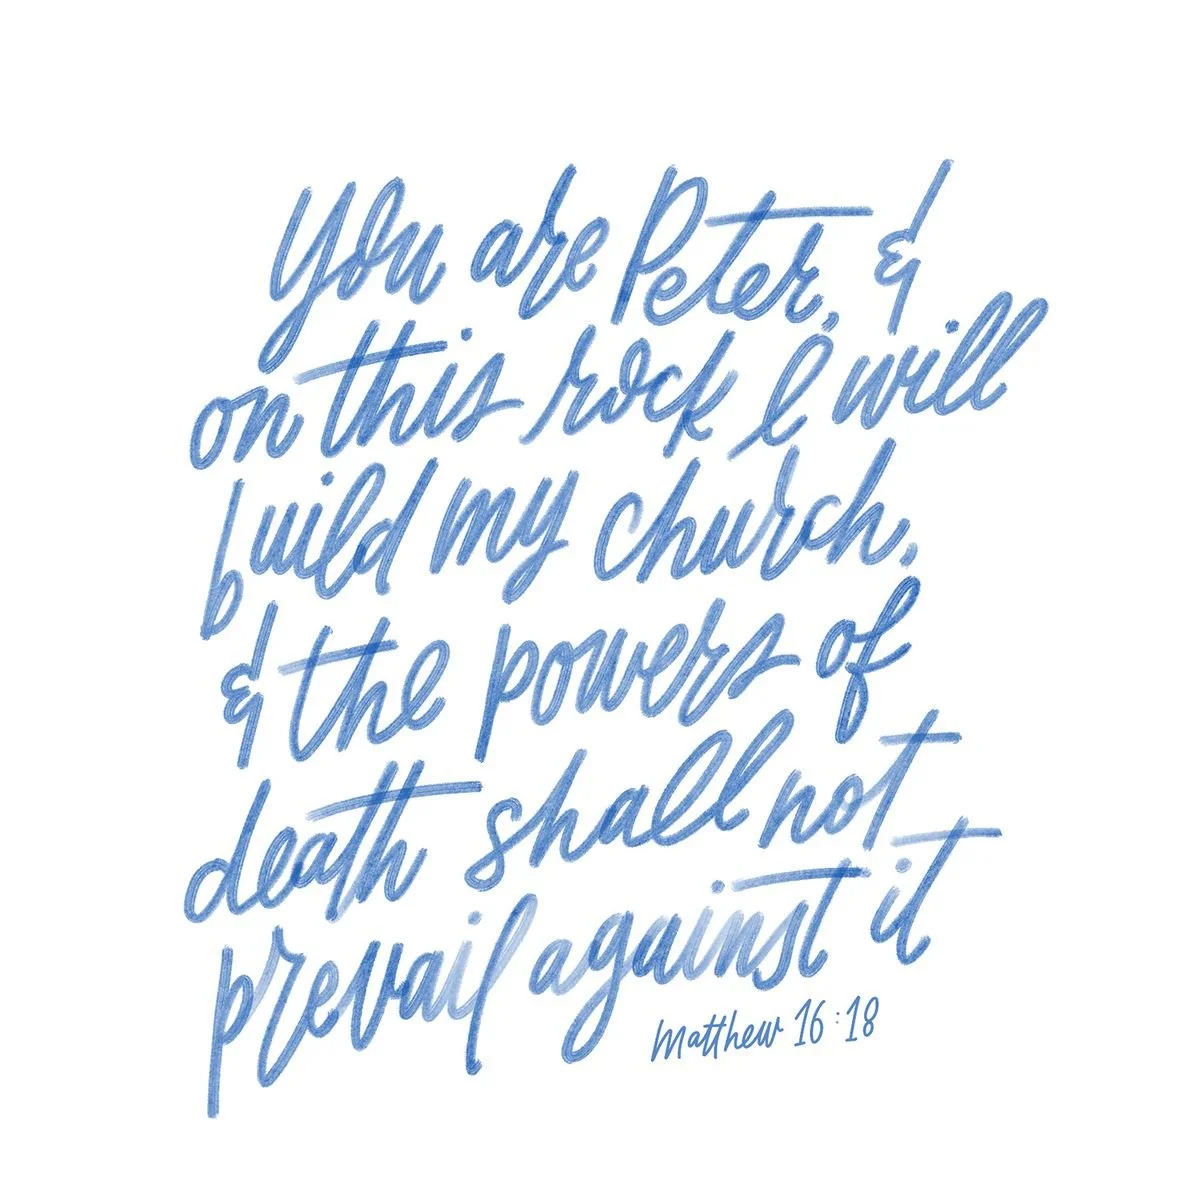 You are Peter, &
on this rock I will
build my church,
& the powers of
death shall not
prevail against it
Matthew 16:18